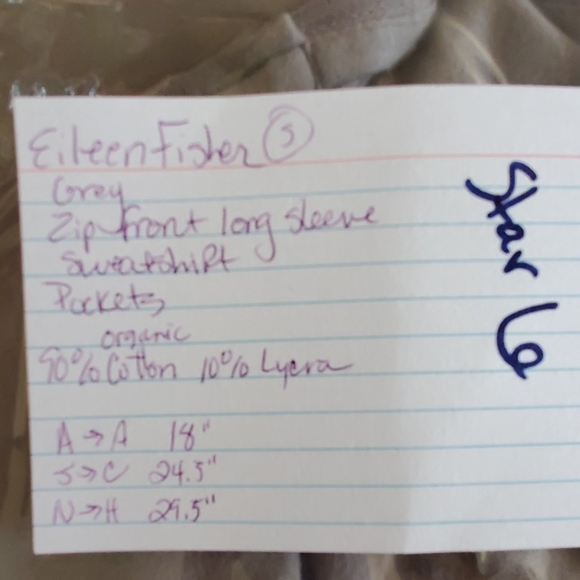 Eileen Fisher S
Grey
Zip front long sleeve
Sweatshirt
Pockets
organic
90% Cotton 10% Lycra
A → A 18"
S → C 24.5"
N → H 29.5"
Star 6